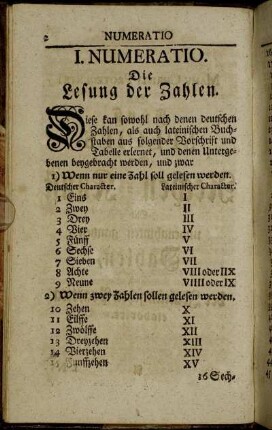 2 NUMERATIO
I. NUMERATIO.
Die
Lesung der Zahlen.
Diese kan sowohl nach denen deutschen
Zahlen, als auch lateinischen Buch-
staben aus folgender Vorschrift und
Tabelle erlernet, und denen Unterge-
benen beygebracht werden, und zwar
1) Wenn nur eine Zahl soll gelesen werden.
Deutscher Character. Lateinischer Character.
1 Eins I
2 Zwey II
3 Drey III
4 Vier IV
5 Fünff V
6 Sechse VI
7 Sieben VII
8 Achte VIII oder IIX
9 Neune VIIII oder IX
2) Wenn zwey Zahlen sollen gelesen werden.
10 Zehen X
11 Eilffe XI
12 Zwölffe XII
13 Dreyzehen XIII
14 Vierzehen XIV
15 Funffzehen XV
16 Sech-